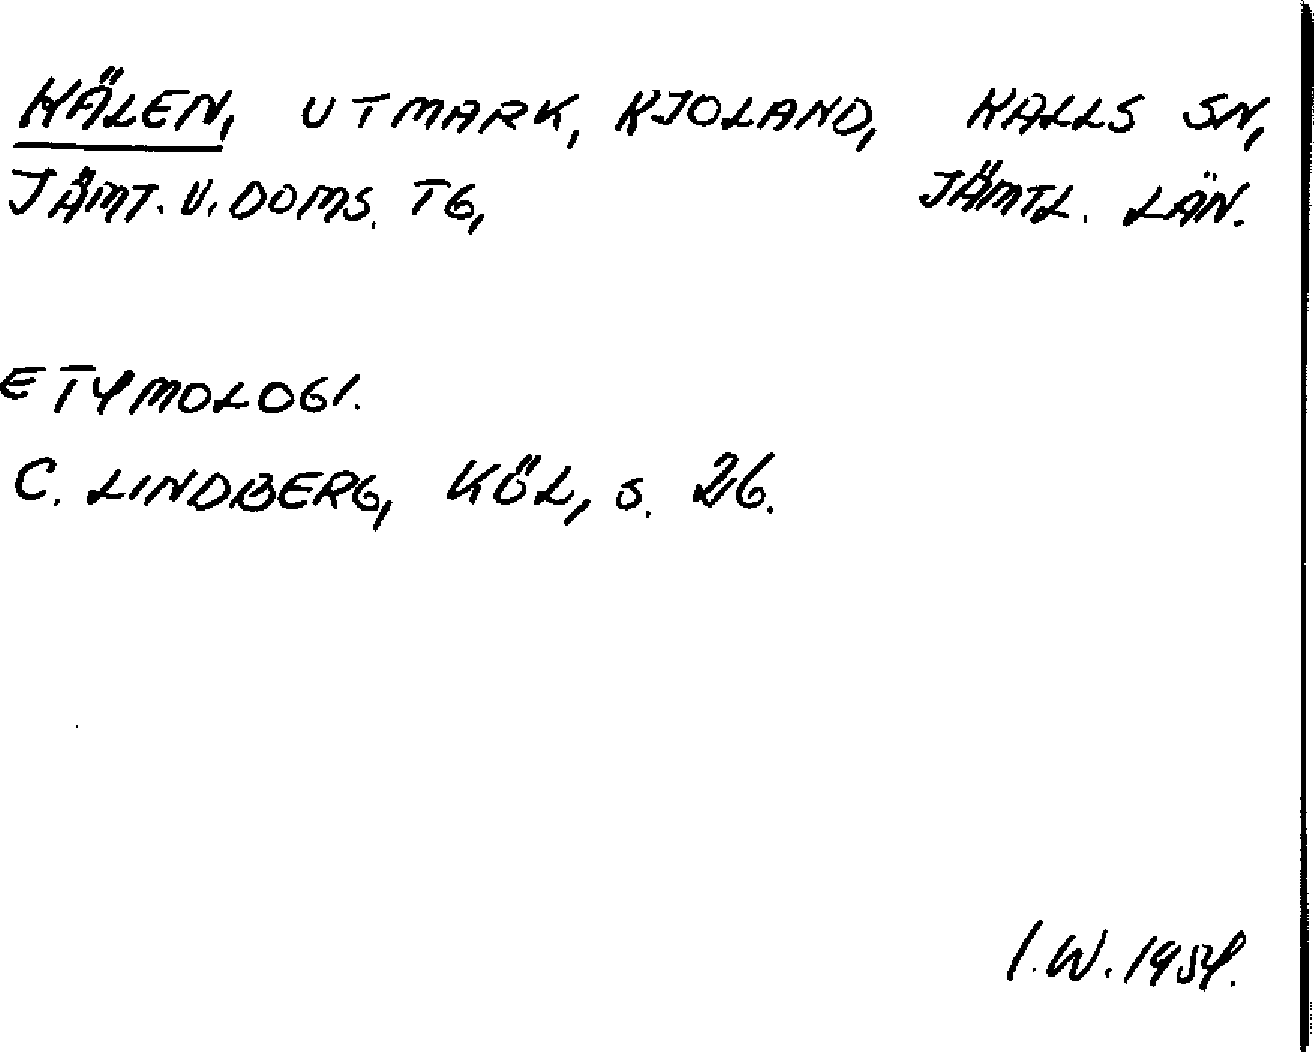 KÄLEN, UTMARK, KJOLAND, KALLS SN,
JÄMT. V. DOMS. TG, JÄMTL. LÄN.
ETYMOLOGI.
C. LINDBERG, KÖL, S. 26.
I.W. 1954.